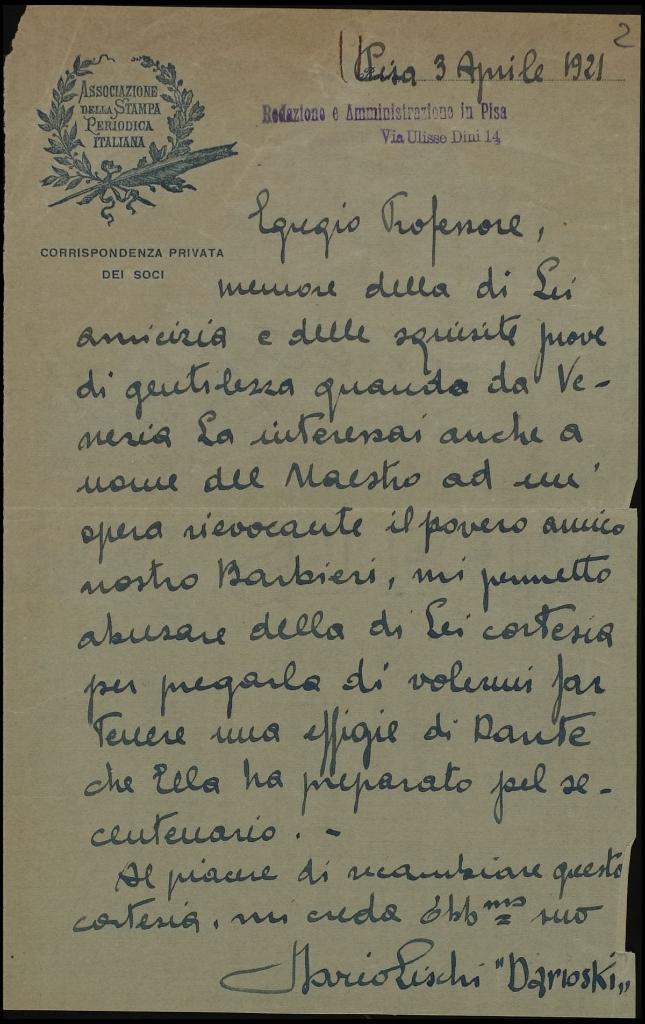 2
Pisa 3 Aprile 1921
ASSOCIAZIONE
DELLA STAMPA
PERIODICA
ITALIANA
Redazione e Amministrazione in Pisa
Via Ulisse Dini 14
CORRISPONDENZA PRIVATA
DEI SOCI
Egregio Professore,
memore della di Lei
amicizia e delle squisite prove
di gentilezza quando da Ve-
nezia La interessai anche a
nome del Maestro ad un'
opera rievocante il povero amico
nostro Barbieri, mi permetto
abusare della di Lei cortesia
per pregarla di volermi far
tenere una effigie di Dante
che Ella ha preparato pel se-
centenario. -
Al piacere di ricambiare questa
cortesia, mi creda Obb.mo suo
Mario Lischi "Darioski"